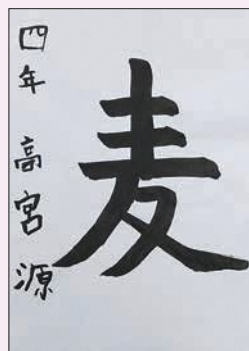 麦
四年 高宮 源